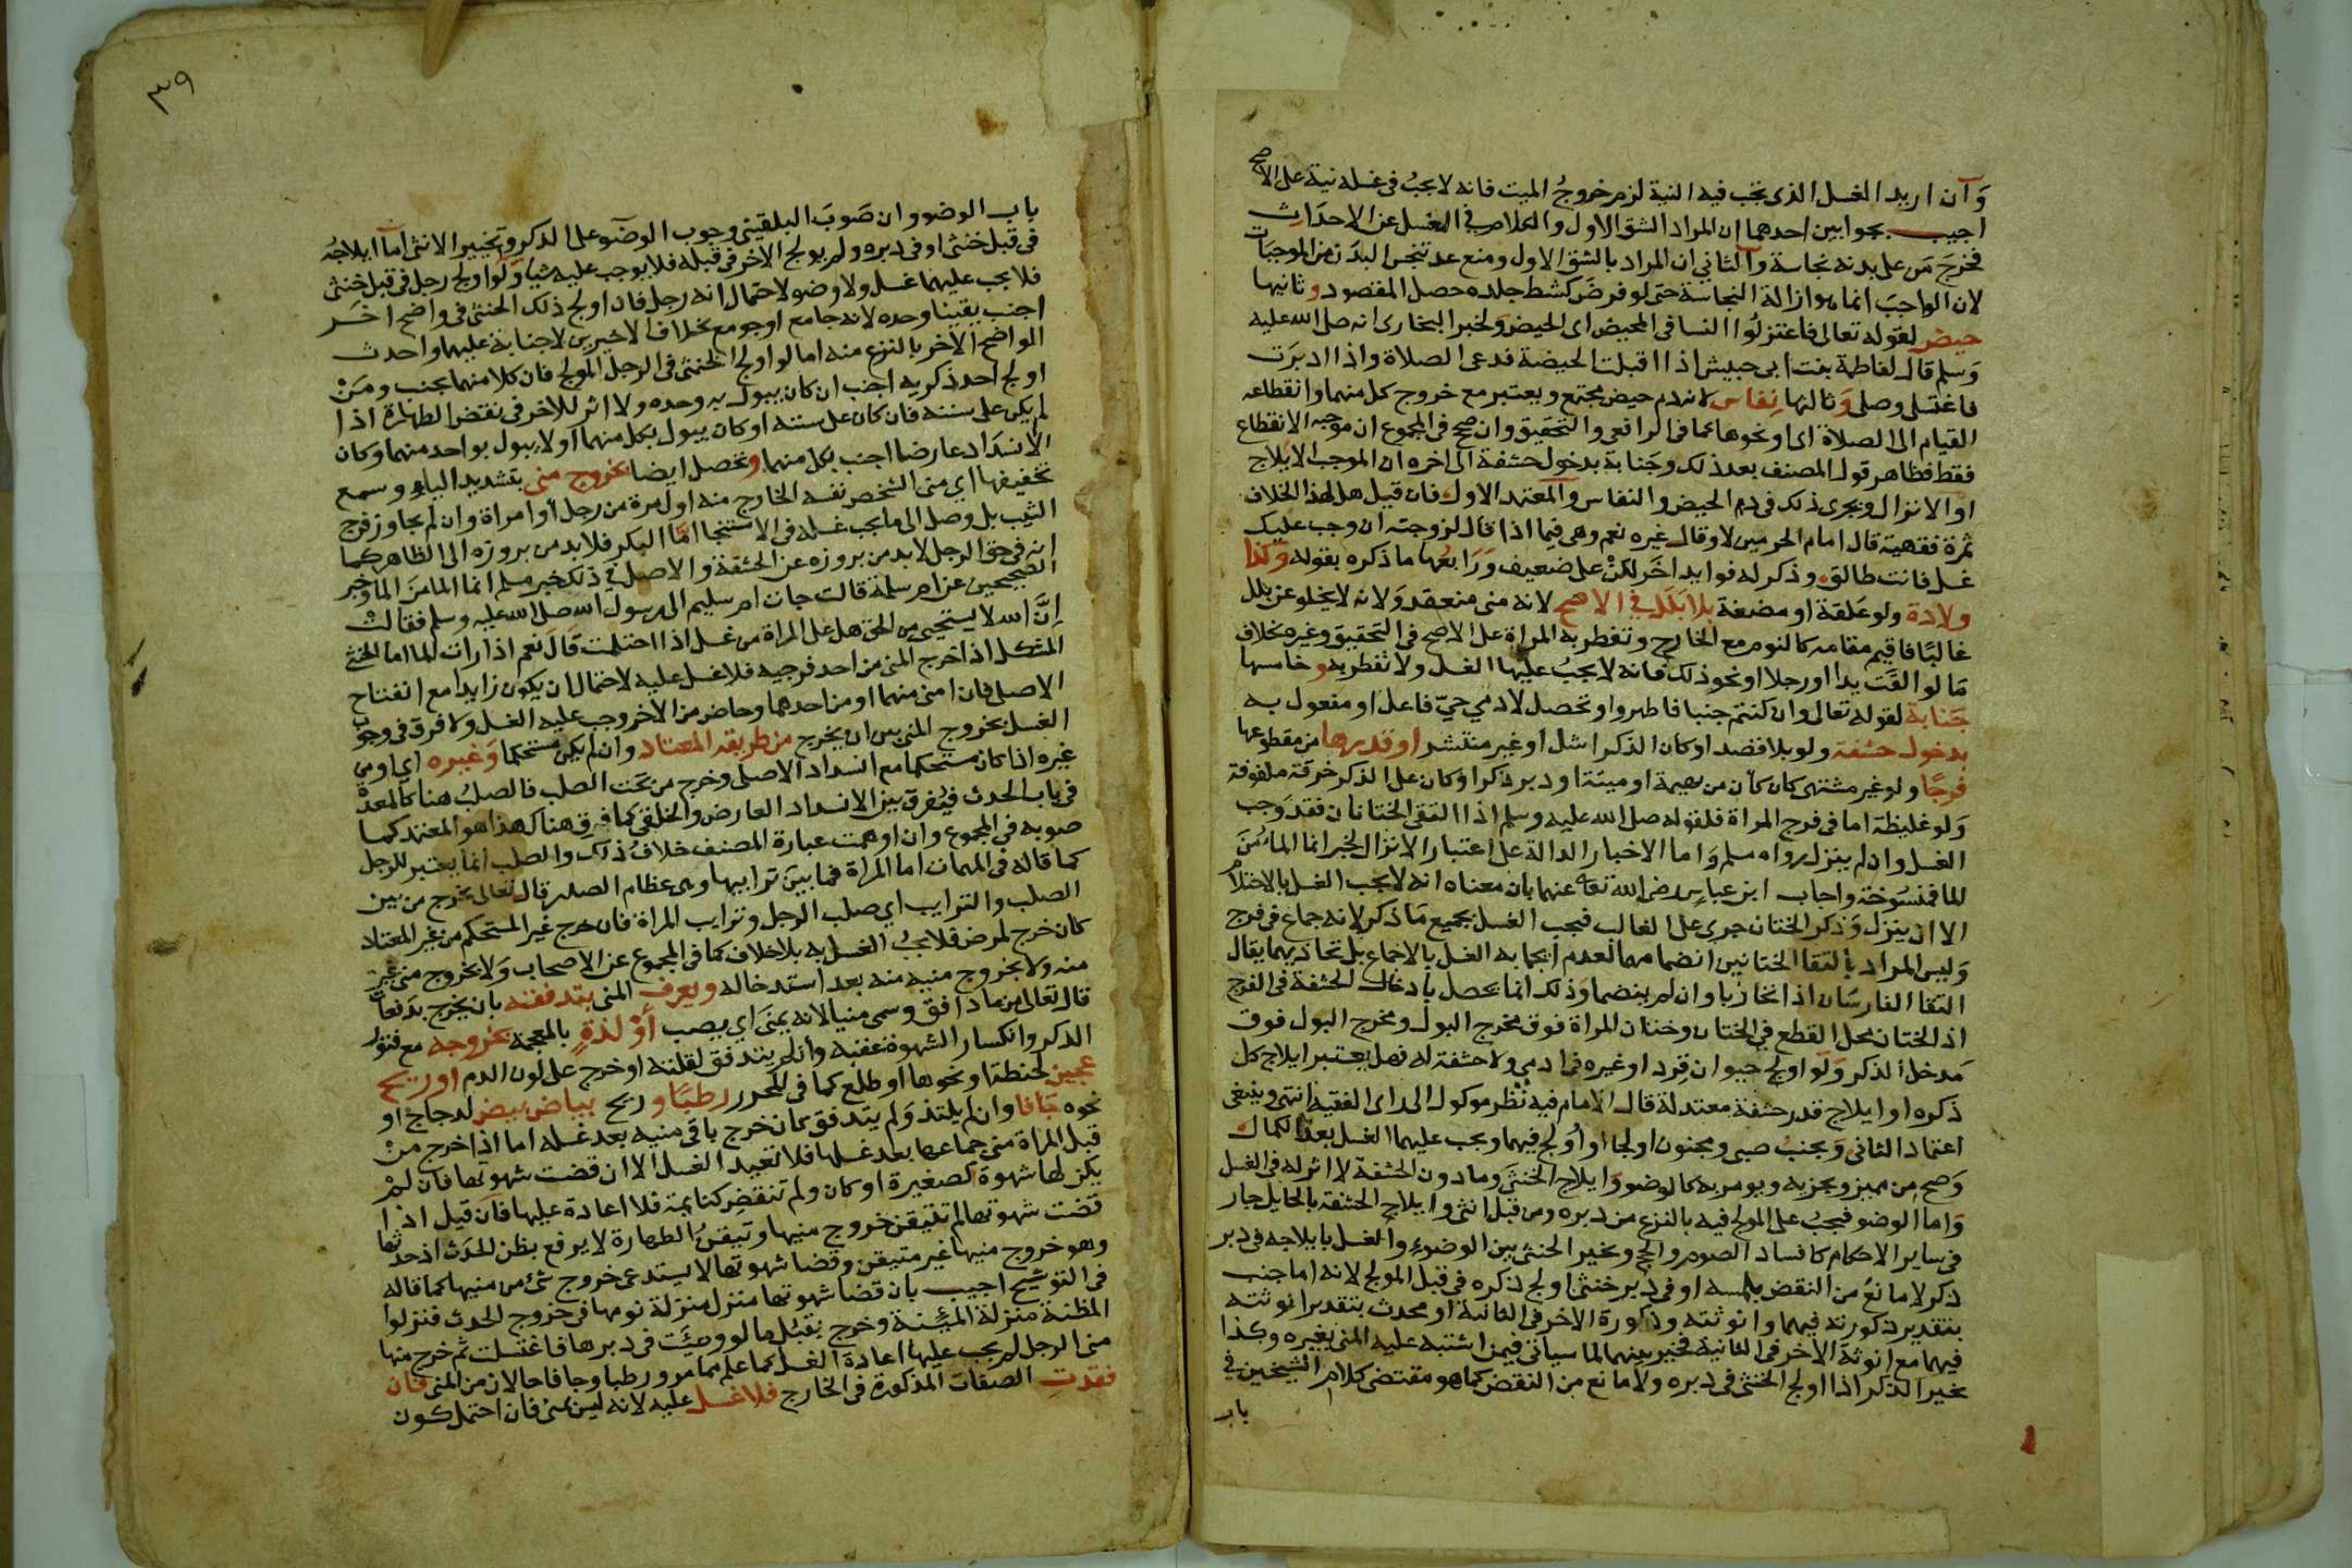 وَان اريد الغسل الذى تجب فيه النية لزم خروجُ الميت فانه لا يجبُ فى غسله نية على الاصح
اجيب بجوابين احدهما ان المراد الشق الاول والكلام فى الغسل عن الاحدَاث
فخرجَ مَن على بدنه نجاسة وَالثاني ان المراد بالشق الاول ومنع عد تنجس البدَن من الموجبَات
لان الواجبَ انما هو ازالة النجاسة حتى لو فرضَ كشط جلده حصل المقصود وثانيها
حيض لقوله تعالى فاعتزلُوا النسا فى المحيض اى الحيض وَلخبر البخارى انه صلى الله عليه
وَسلم قال لفاطمة بنت ابى حبيش اذا اقبلت الحيضة فدعى الصلاة واذا ادبرَت
فاغتسلى وصلى وَثالثها نِفاس لانه دم حيض مجتمع ويعتبر مع خروج كل منهما وانقطاعه
القيام الى الصلاة اى او نحوها كما فى الرافعى والتحقيق وان صحح فى المجموع ان موجبه الانقطاع
فقط فظاهر قول المصنف بعد ذلك وجَنابة بدخول حشفة الى اخره ان الموجب الايلاج
او الانزال ويجرى ذلك فى دم الحيض والنفاس والمعتمد الاول فان قيل هل لهذا الخلاف
ثمرة فقهية قال امام الحرمين لا وقال غيره نعم وهى فيما اذا قال لزوجته ان وجب عليك
غسل فانت طالق وذكر له فوايد اخَر لكنْ على ضعيف وَرَابعُها ما ذكره بقوله وَكذا
ولادة ولو عَلقة او مضغة بلا بَلَل فى الاصح لانه منى منعقد وَلانه لا يخلو عن بلل
غالبًا فاقيم مقامه كالنوم مع الخارج وتفطر به المراة على الاصح فى التحقيق وغيره بخلاف
مَا لو القَت يدا او رجلا او نحو ذلك فانه لا يجبُ عليها الغسل ولا تفطر به وخامسها
جَنابة لقوله تعالى وان كنتم جنبا فاطهروا وتحصل لادمي حيّ فاعل او مفعول به
بدخول حشفة ولو بلا قصد او كان الذكر اشل او غير منتشر او قدرها من مقطوعها
فرجًا ولو غير مشتهى كان كأن من بهيمة او ميتة او دبر ذكر او كان على الذكر خرقة ملفوفة
وَلو غليظة اما فى فرج المراة فلقوله صلى الله عليه وسلم اذا التقى الختانان فقد وَجب
الغسل وان لم ينزل رواه مسلم وَاما الاخبار الدالة على اعتبار الانزال كخبر انما الما مُنَ
الما فمنسُوخة واجاب ابن عباس رضى الله تعالى عنهما بان معناه انه لا يجب الغسل بالاحتلام
الا ان ينزل وَذكر الختان جرى على الغالب فيجب الغسل بجميع مَا ذكر لانه جماع فى فرج
وَليس المراد بالتقا الختانين انضمامهما لعدم ايجابه الغسل بالاجماع بل تحاذيهما يقال
التقا الفارسَان اذا تحاذيا وان لم ينضما وَذلك انما يحصل بادخال الحشفة فى الفرج
اذ الختان محل القطع فى الختان وختان المراة فوق مخرج البول ومخرج البول فوق
مَدخل الذكر وَلو اولج حيوان قِرد او غيره فى ادمى ولا حشفة له فهل يعتبر ايلاج كل
ذكره او ايلاج قدر حشفة معتدلة قال الامام فيه نظر موكول الى راى الفقيه انتهى وينبغى
اعتماد الثانى وَيجنبُ صبى ومجنون اولجا او اُولج فيهما ويجب عليهما الغسل بعد الكمال
وَصح من مميز ويجزيه ويومر به كالوضو وَايلاج الخنثى وما دون الحشفة لا اثر له فى الغسل
وَاما الوضو فيجبُ على المولج فيه بالنزع من دبره ومن قبل انثى وايلاج الحشفة بالحايل جار
فى ساير الاحكام كافساد الصوم والحج ويخير الخنثى بين الوضوءِ والغسل بايلاجه فى دبر
ذكر لا مانعَ من النقض بلمسه او فى دُبر خنثى اولج ذكره فى قبل المولج لانه اما جنب
بتقدير ذكورته فيهما وانوثته وذكورة الاخر فى الثانية او محدث بتقدير انوثته
فيهما مع انوثة الاخر فى الثانية فخير بينهما لما سياتى فيمن اشتبه عليه المنى بغيره وكذا
يخير الذكر اذا اولج الخنثى فى دبره ولا مانع من النقض كما هو مقتضى كلام الشيخين فى
باب
٣٩
باب الوضو وان صَوبَ البلقينى وجوب الوضوَ على الذكر وتخيير الانثى اما ايلاجُه
فى قبل خنثى او فى دبره ولم يولج الاخر فى قبله فلا يوجب عليه شيا وَلو اولج رجل فى قبل خنثى
فلا يجب عليهما غسل ولا وضو لاحتمال انه رجل فان اولج ذلك الخنثى فى واضح اخَر
اجنب يقينا وحده لانه جامع او جومع بخلاف الاخيرين لا جنابة عليهما واحدث
الواضح الاخر بالنزع منه اما لو اولج الخنثى فى الرجل المولج فان كلا منهما يجنب ومَنْ
اولج احد ذكريه اجنب ان كان يبول به وحده ولا اثر للاخر فى نقض الطهارة اذا
لم يكن على سننه فان كان على سننه او كان يبول بكل منهما او لا يبول بواحد منهما وكان
الانسدَاد عارضا اجنب بكل منهما وتحصل ايضا بخروج منى بتشديد الياءِ وسمع
تخفيفها اى منى الشخص نفسه الخارج منه اول مرة من رجل او امراة وان لم يجاوز فرج
الثيب بل وصل الى ما يجب غسله فى الاستنجا امَّا البكر فلا بد من بروزه الى الظاهر كما
انه فى حق الرجل لا بد من بروزه عن الحشفة والاصل فى ذلك خبر مسلم انما الما منَ الما وخبر
الصحيحين عن ام سلمة قالت جات ام سليم الى رسول الله صلى الله عليه وسلم فقالت
اِنَّ الله لا يستحيى من الحق هل على المراة من غسل اذا احتلمت قال نعم اذا رات الما اما الخنثى
المشكل اذا خرج المنى من احد فرجيه فلا غسل عليه لاحتمال ان يكون زايدا مع انفتاح
الاصلى فان امنى منهما او من احدهما وحاض من الاخر وجب عليه الغسل ولا فرق فى وجوب
الغسل بخروج المنى بين ان يخرج من طريقه المعتاد وان لم يكن مستحكما وَغيره اى او من
غيره اذا كان مستحكما مع انسداد الاصلى وخرج من تحت الصلب فالصلبُ هنا كالمعدة
فى باب الحدث فيُفرق بين الانسداد العارض والخلقى كما فرق هناك هذا هو المعتمد كما
صوبه فى المجموع وان اوهمت عبارة المصنف خلافُ ذلك والصلب انما يعتبر للرجل
كما قاله فى المهمات اما المراة فما بينَ ترايبها وهى عظام الصدر قال تعالى يخرج من بين
الصلب والترايب اي صلب الرجل وترايب المراة فان خرج غير المستحكم من غير المعتاد
كان خرج لمرض فلا يجبُ الغسل به بلا خلاف كما فى المجموع عن الاصحاب وَلا بخروج منى غيره
منه ولا بخروج منيه منه بعد استدخاله ويعرف المنى بتدفقه بان يخرج بدَفعات
قال تعالى من ما دافق وسمى منيا لانه يمنَى اي يصب أوْ لذةٍ بالمعجمة بخروجه مع فتور
الذكر وانكسار الشهوة عقبه وان لم يتدفق لقلته او خرج على لون الدم او ريح
عجين لحنطة او نحوها او طلع كما فى المحرر رطبًا وريح بياض بيض لدجاج او
نحوه جَافا وان لم يلتذ وَلم يتدفق كان خرج باقى منيه بعد غسله اما اذا خرج منْ
قبل المراة منى جماعها بعد غسلها فلا تعيد الغسل الا ان قضت شهوتها فان لمْ
يكن لها شهوة كصغيرة او كان ولم تنقضِ كنايمة فلا اعادة عليها فَان قيل اذا
قضت شهوتها لم تتيقن خروج منيها وتيقنُ الطهارة لا يرفع بظن الحدَث اذ حدثها
وهو خروج منيها غير متيقن وقضا شهوتها لا يستدعى خروج شئ من منيها كما قاله
فى التوشيح اجيب بان قضا شهوتها منزل منزلة نومها فى خروج الحدث فنزلوا
المظنة منزلة المئِنة وخرج بقبل ما لو وطِئَت فى دبرها فاغتسلت ثم خرج منها
منى الرجل لم يجب عليها اعادة الغسل كما علم مما مر ورطبا وجافا حالان من المنى فان
فقدت الصفات المذكورة فى الخارج فلا غسل عليه لانه ليس بمنى فان احتمل كون